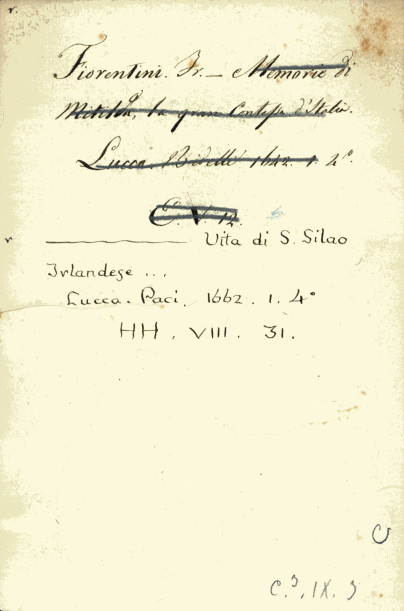 r.
Fiorentini. Fr. — Memorie di
Mitilda, la gran Contessa d'Italia.
Lucca. 1642. 1. 4°.
C. V. 12.
r ——— Vita di S. Silao
Irlandese ...
Lucca. Paci. 1662. 1. 4°
HH. VIII. 31.
C
C.3. IX. 3